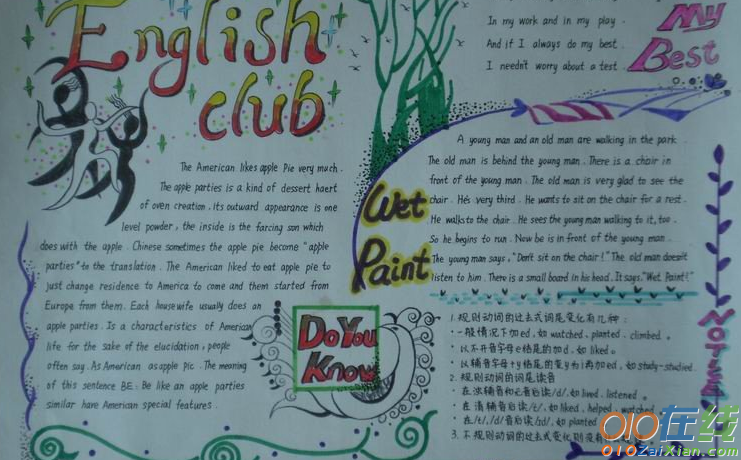 English
club
The American likes apple Pie very much.
The apple parties is a kind of dessert haert
of oven creation. its outward appearance is one
level powder, the inside is the farcing son which
does with the apple. Chinese sometimes the apple pie become "apple
parties" to the translation. The American liked to eat apple pie to
just change residence to America to come and them started from
Europe from them. Each housewife usually does an
apple parties. Is a characteristics of American
life for the sake of the elucidation, people
often say. As American as apple pic. The meaning
of this sentence BE: Be like an apple parties
similar have American special features.
Do You
Know
In my work and in my play.
And if I always do my best.
I needn't worry about a test.
My
Best
Wet
Paint
A young man and an old man are walking in the park.
The old man is behind the young man. There is a chair in
front of the young man. The old man is very glad to see the
chair. He's very third. He wants to sit on the chair for a rest.
He walks to the chair. He sees the young man walking to it, too.
So he begins to run. Now be is in front of the young man.
The young man says, "Don't sit on the chair!" The old man doesn't
listen to him. There is a small board in his head. It says "Wet Paint!"
1. 规则动词的过去式词尾变化有几种:
·一般情况下加ed,如watched, planted, climbed。
·以不发音字母e结尾的加d,如liked。
·以辅音字母+y结尾的变y为i再加ed,如study-studied.
2. 规则动词的词尾读音
·在浊辅音和元音后读/d/,如lived, listened。
·在清辅音后读/t/,如liked, helped, watched
·在/t/,/d/音后读/ɪd/,如planted
3. 不规则动词的过去式变化则没有
NOTE
010在线
010ZaiXian.com